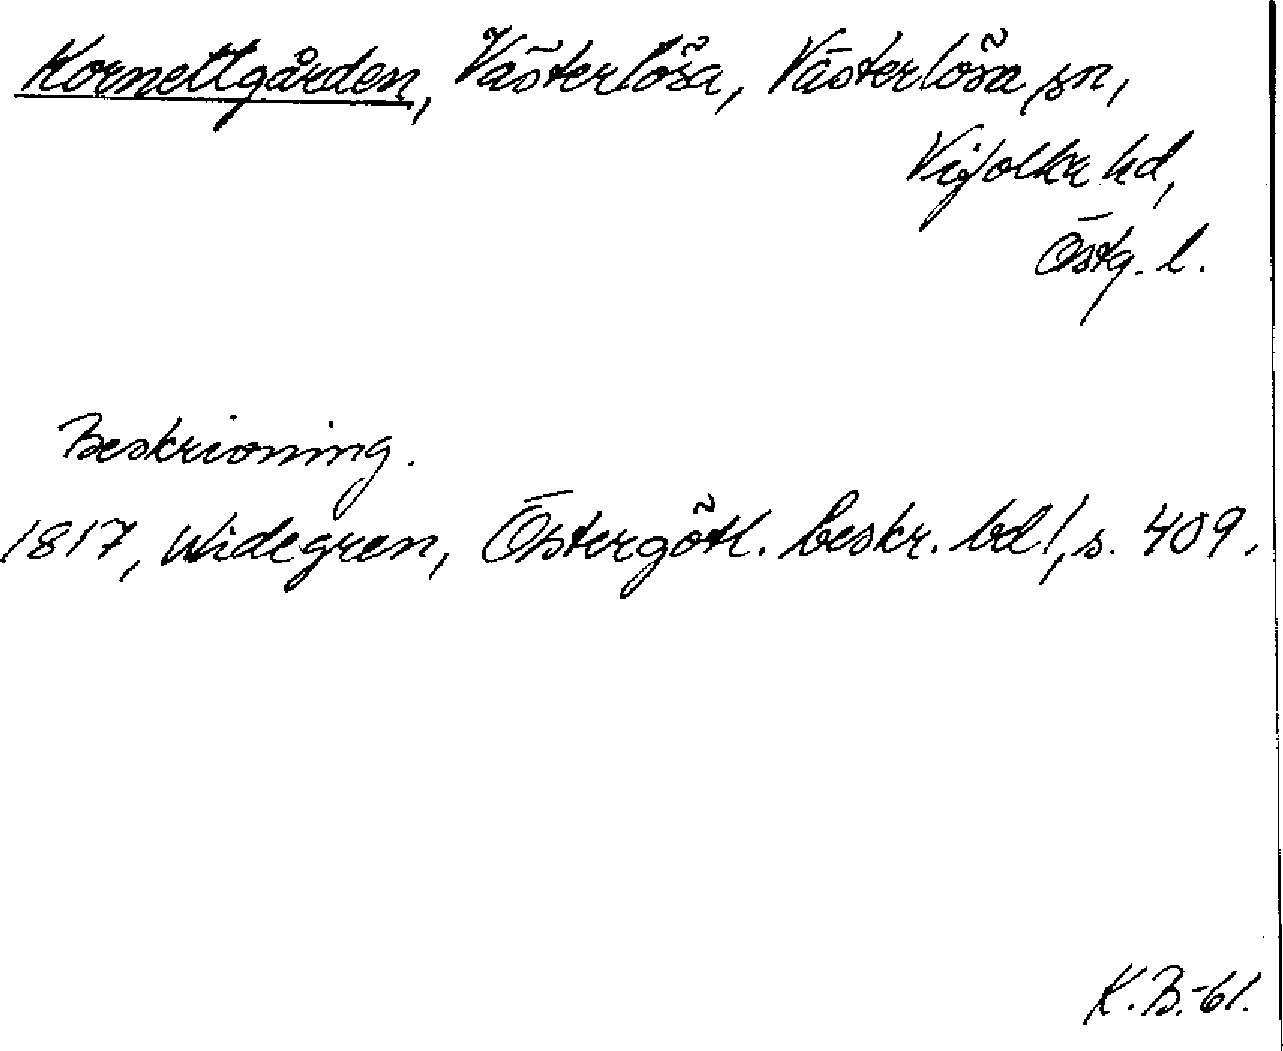 Kornettgården, Västerlösa, Västerlösa sn,
Vifolka hd,
Östg. l.
Beskrivning.
1817, Widegren, Östergötl. beskr. bd 1, s. 409.
K.B.-61.